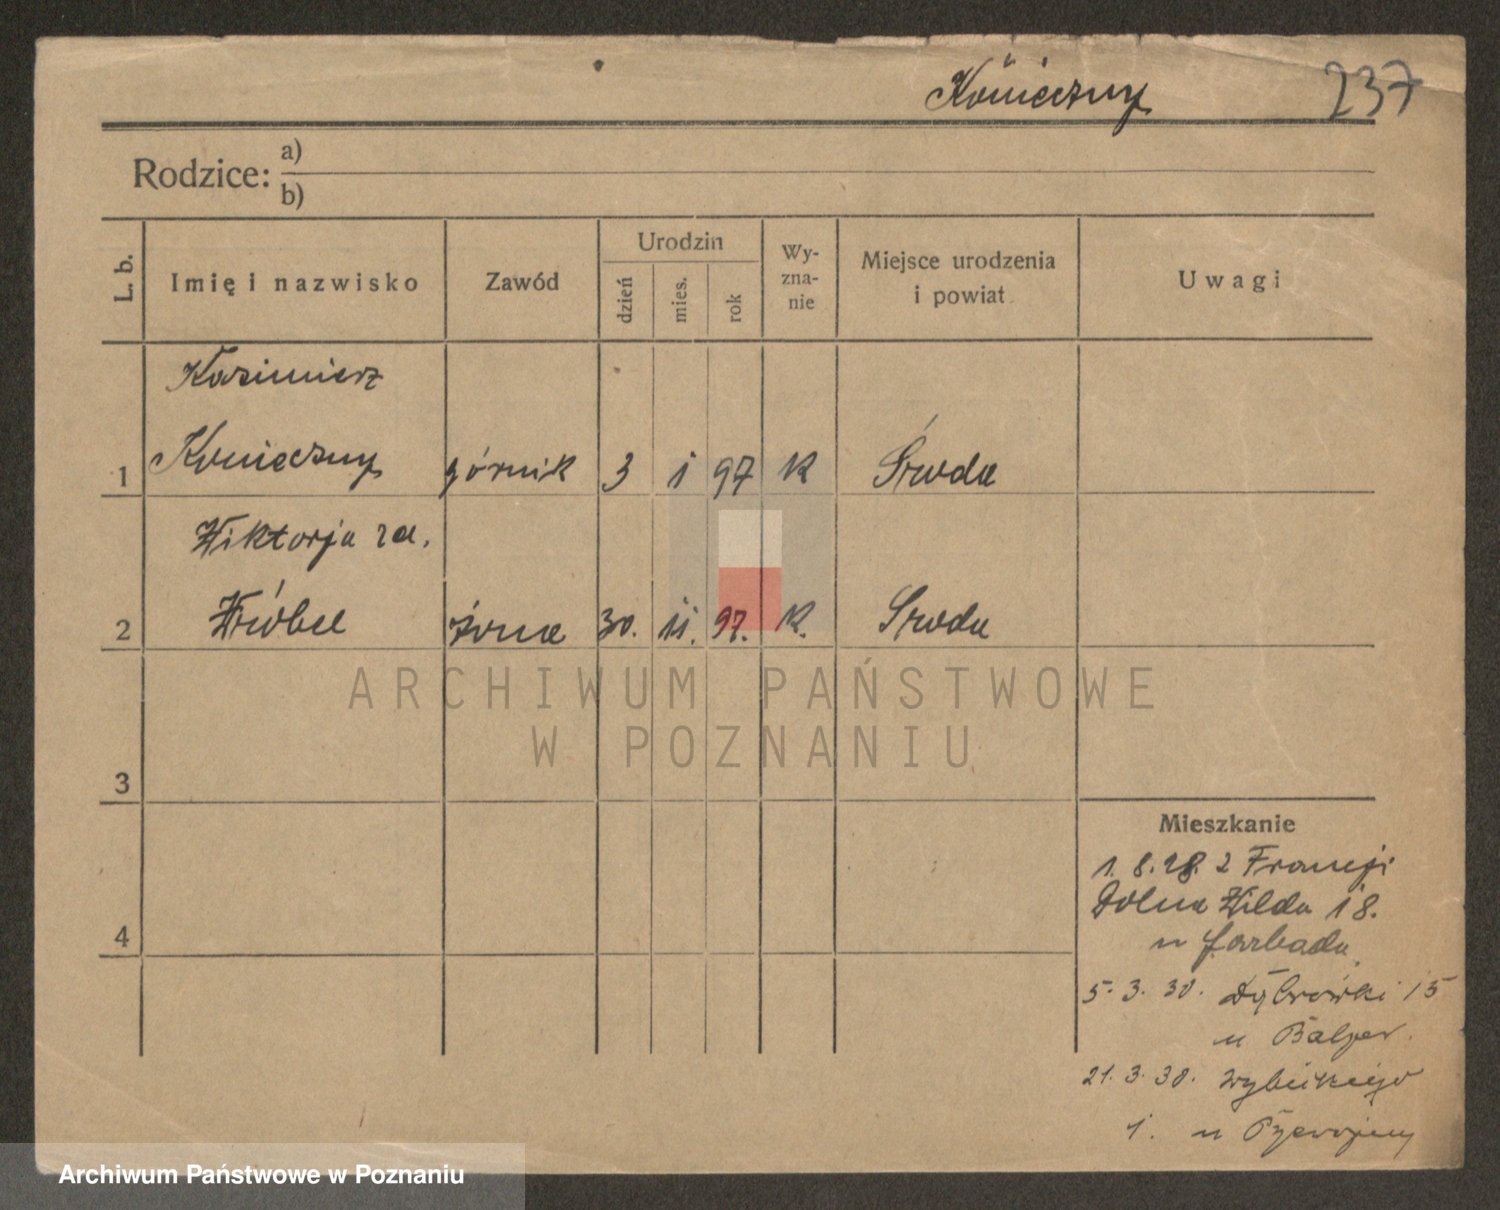 Konieczny 237
Rodzice: a)
b)
L. b. Imię i nazwisko Zawód Urodzin dzień mies. rok Wy-zna-nie Miejsce urodzenia i powiat Uwagi
Kazimierz
1 Konieczny górnik 3 1 97 K Środa
Wiktorja zd.
2 Wróbel żona 30. 11. 97. K. Środa
ARCHIWUM PAŃSTWOWE
W POZNANIU
3
4
Mieszkanie
1. 8. 28. z Francji
Dolna Wilda 18.
u
5. 3. 30. Dąbrówki 15
u
21. 3. 30. Wybickiego
1. u
Archiwum Państwowe w Poznaniu